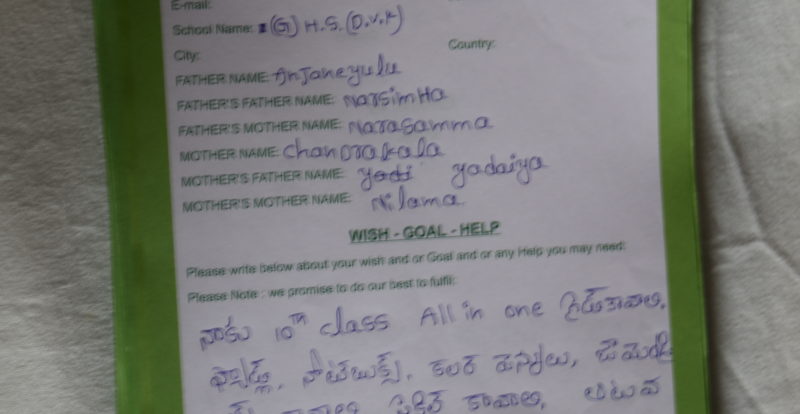 E-mail:
School Name: (G) H.S. (D.V.K)
City: Country:
FATHER NAME: Anjaneyulu
FATHER'S FATHER NAME: NarsimHa
FATHER'S MOTHER NAME: Narasamma
MOTHER NAME: Chandrakala
MOTHER'S FATHER NAME: yadaiya
MOTHER'S MOTHER NAME: Nilama
WISH - GOAL - HELP
Please write below about your wish and or Goal and or any Help you may need:
Please Note : we promise to do our best to fulfil:
నాకు 10TH class All in one గైడ్ కావాలి,
ప్యాడ్లు, నోట్‌బుక్స్, కలర్ పెన్నులు,
కావాలి,